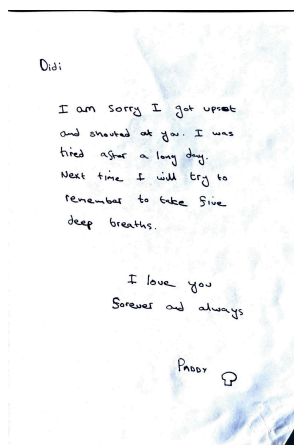 Didi
I am sorry I got upset
and shouted at you. I was
tired after a long day.
Next time I will try to
remember to take five
deep breaths.
I love you
forever and always
PADDY